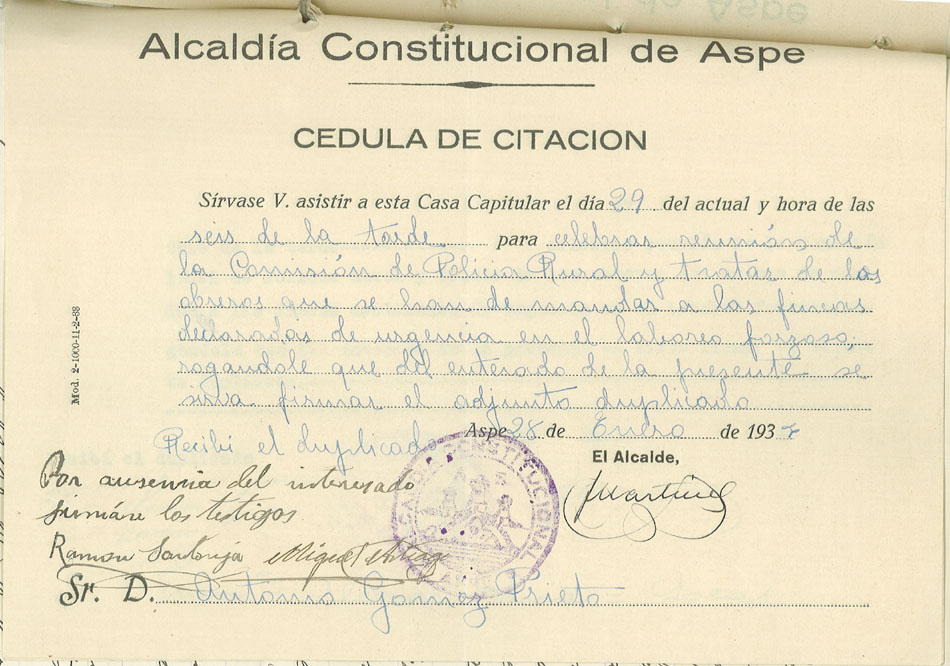 Alcaldía Constitucional de Aspe
CEDULA DE CITACION
Sírvase V. asistir a esta Casa Capitular el día 29 del actual y hora de las
seis de la tarde para celebrar reunión de
la Comisión de Policia Rural y tratar de los
obreros que se han de mandar a las fincas
declaradas de urgencia en el laboreo forzoso,
rogandole que del enterado de la presente se
sirva firmar el adjunto duplicado
Mod. 2-1000-11-2-33
Aspe 28 de Enero de 1937
Recibí el duplicado
El Alcalde,
Martinez
Por ausencia del interesado
firman los testigos
Ramon Miguel
ALCALDIA CONSTITUCIONAL
Sr. D. Antonio Gomez Prieto